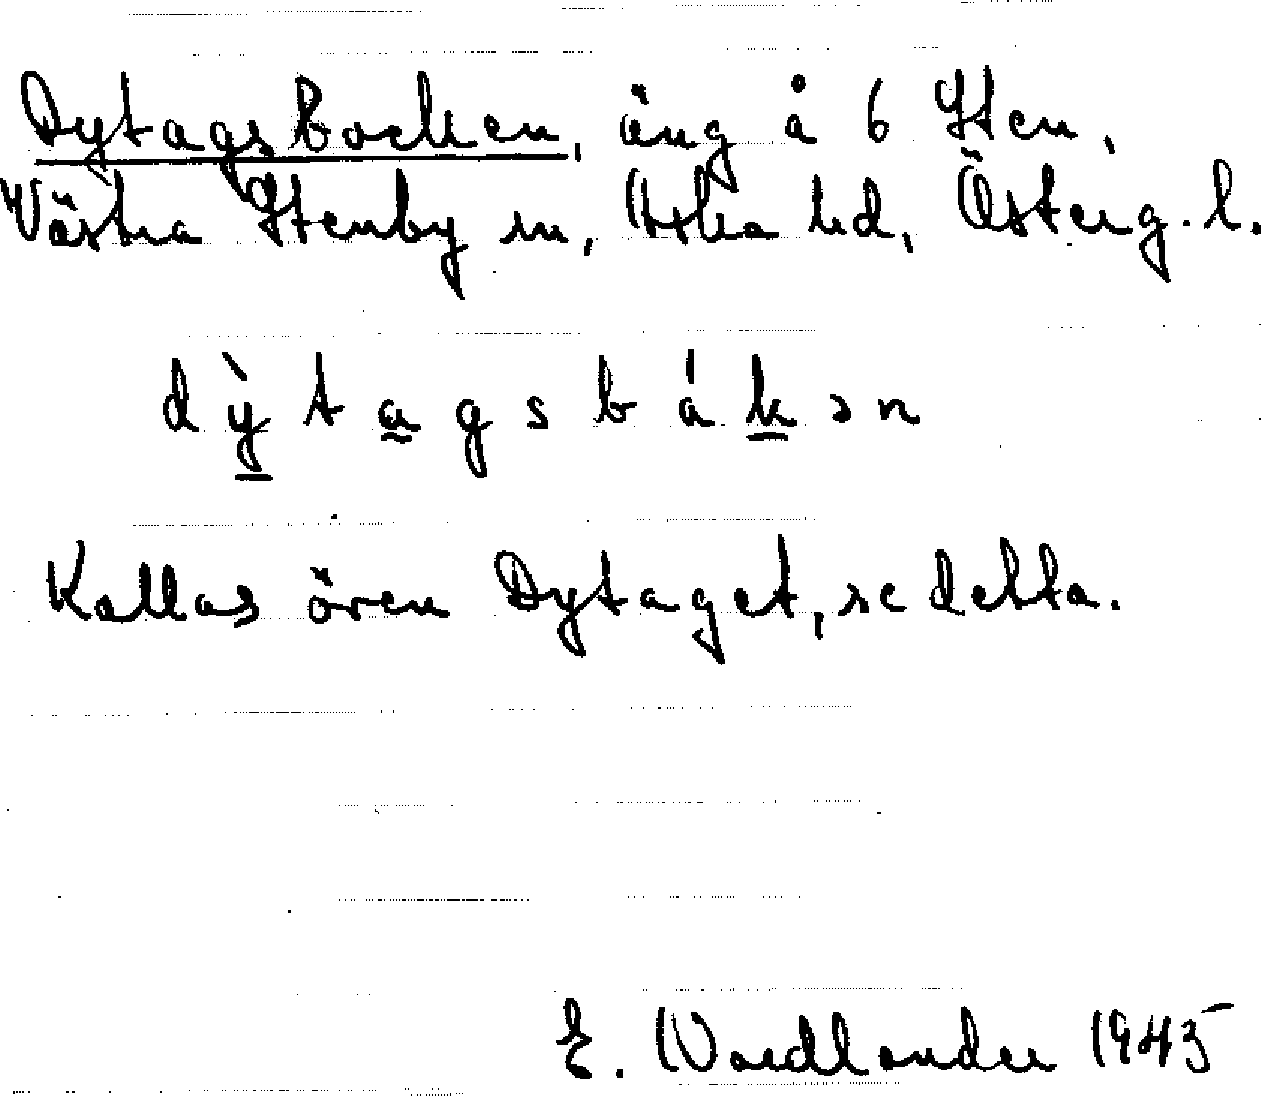 Dytagsbocken, äng å 6 Sten,
Västra Stenby sn, Aska hd, Österg. l.
dỳtagsbåkən
Kallas även Dytaget, se detta.
E. Nordlander 1945